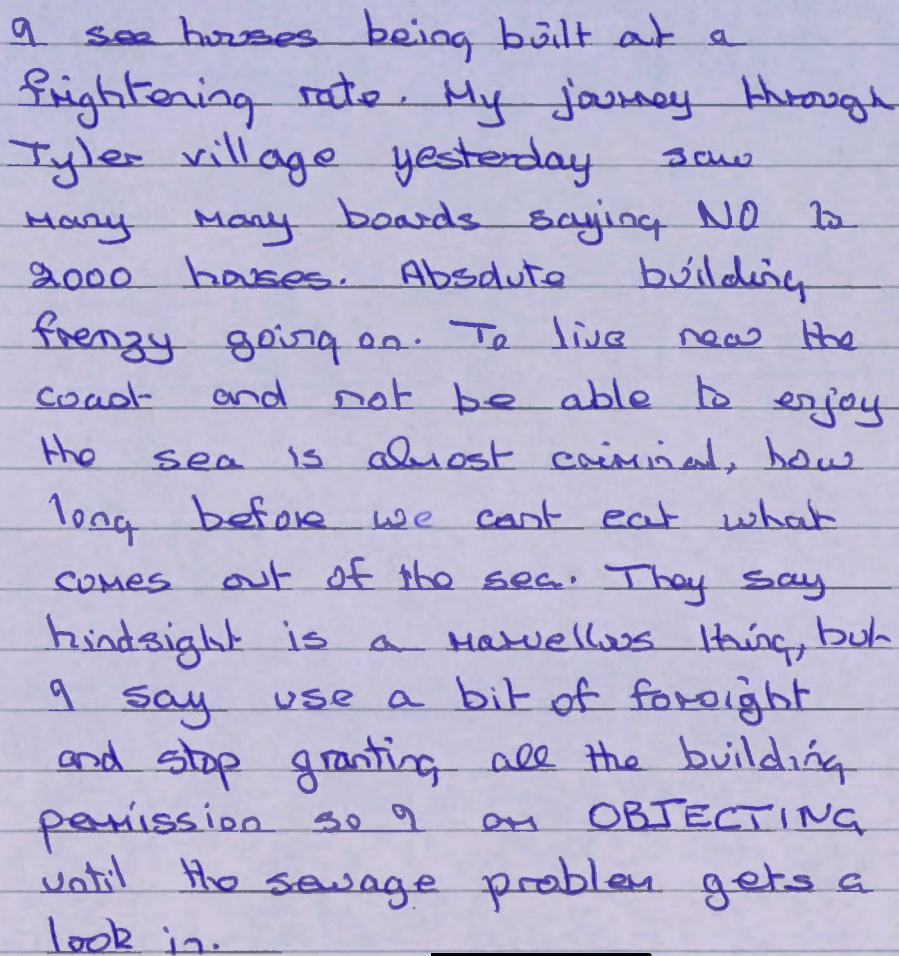 I see houses being built at a
frightening rate. My journey through
Tyler village yesterday saw
many many boards saying NO to
2000 houses. Absolute building
frenzy going on. To live near the
coast and not be able to enjoy
the sea is almost criminal, how
long before we cant eat what
comes out of the sea. They say
hindsight is a marvellous thing, but
I say use a bit of forsight
and stop granting all the building
permission so I am OBJECTING
until the sewage problem gets a
look in.